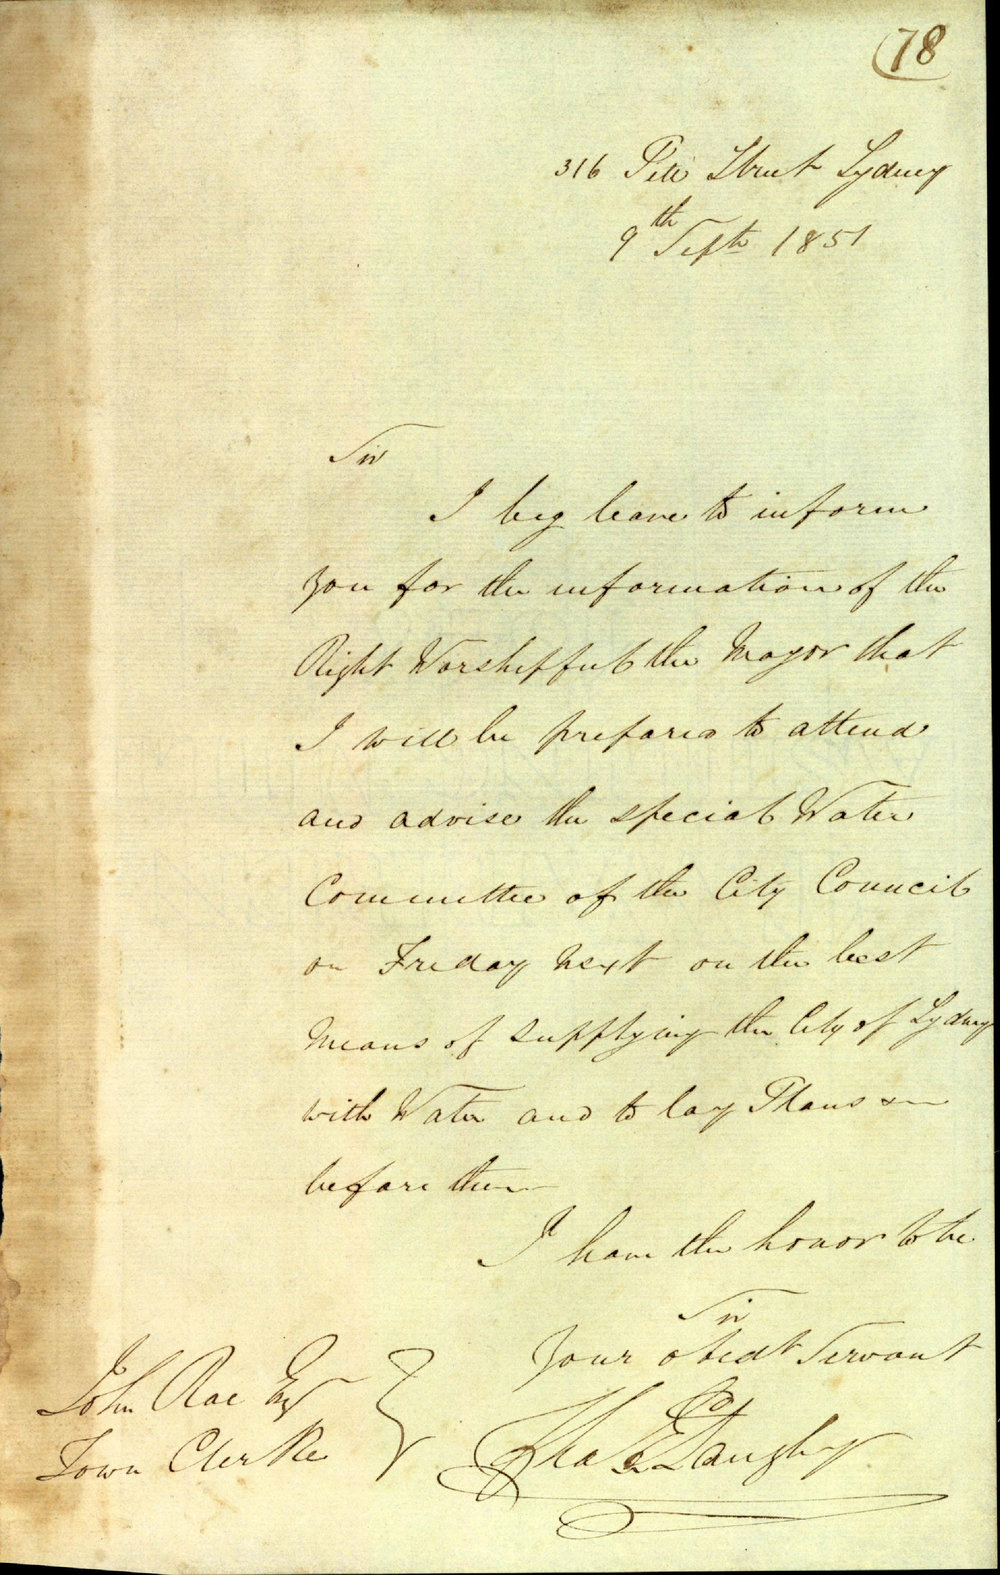 78
316 Pitt Street Sydney
9th Septr 1851
Sir
I beg leave to inform
you for the information of the
Right Worshipful the Mayor that
I will be prepared to attend
and advise the special Water
Committee of the City Council
on Friday next on the best
Means of supplying the City of Sydney
with Water and to lay Plans &c
before them
I have the honor to be
Sir
Your obedt Servant
John Rae Esq
Town Clerke